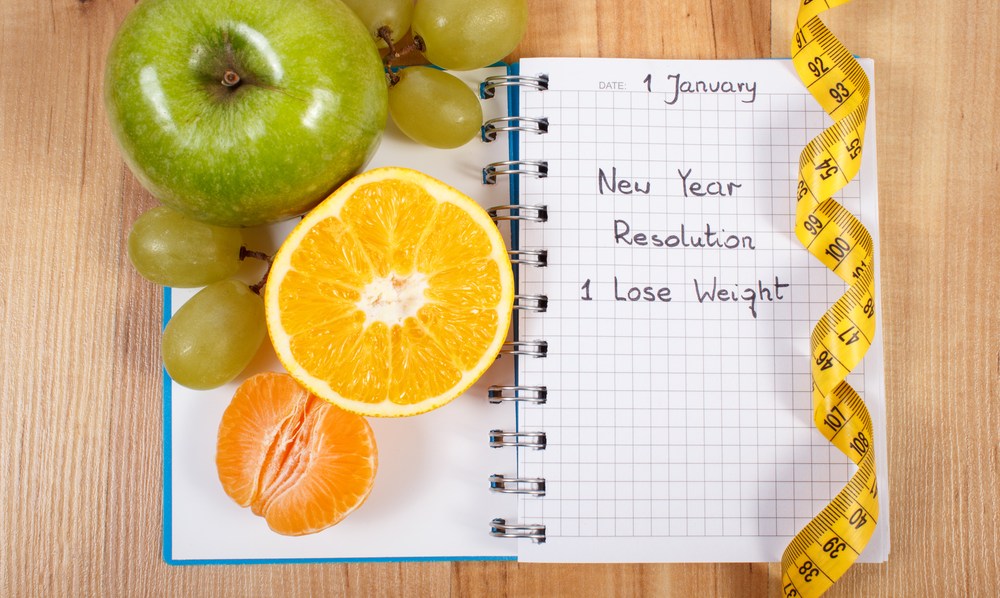 DATE: 1 January
New Year
Resolution
1 Lose Weight
91
92
93
55
54
53
99
100
101
48
47
46
107
108
40
39
38
37